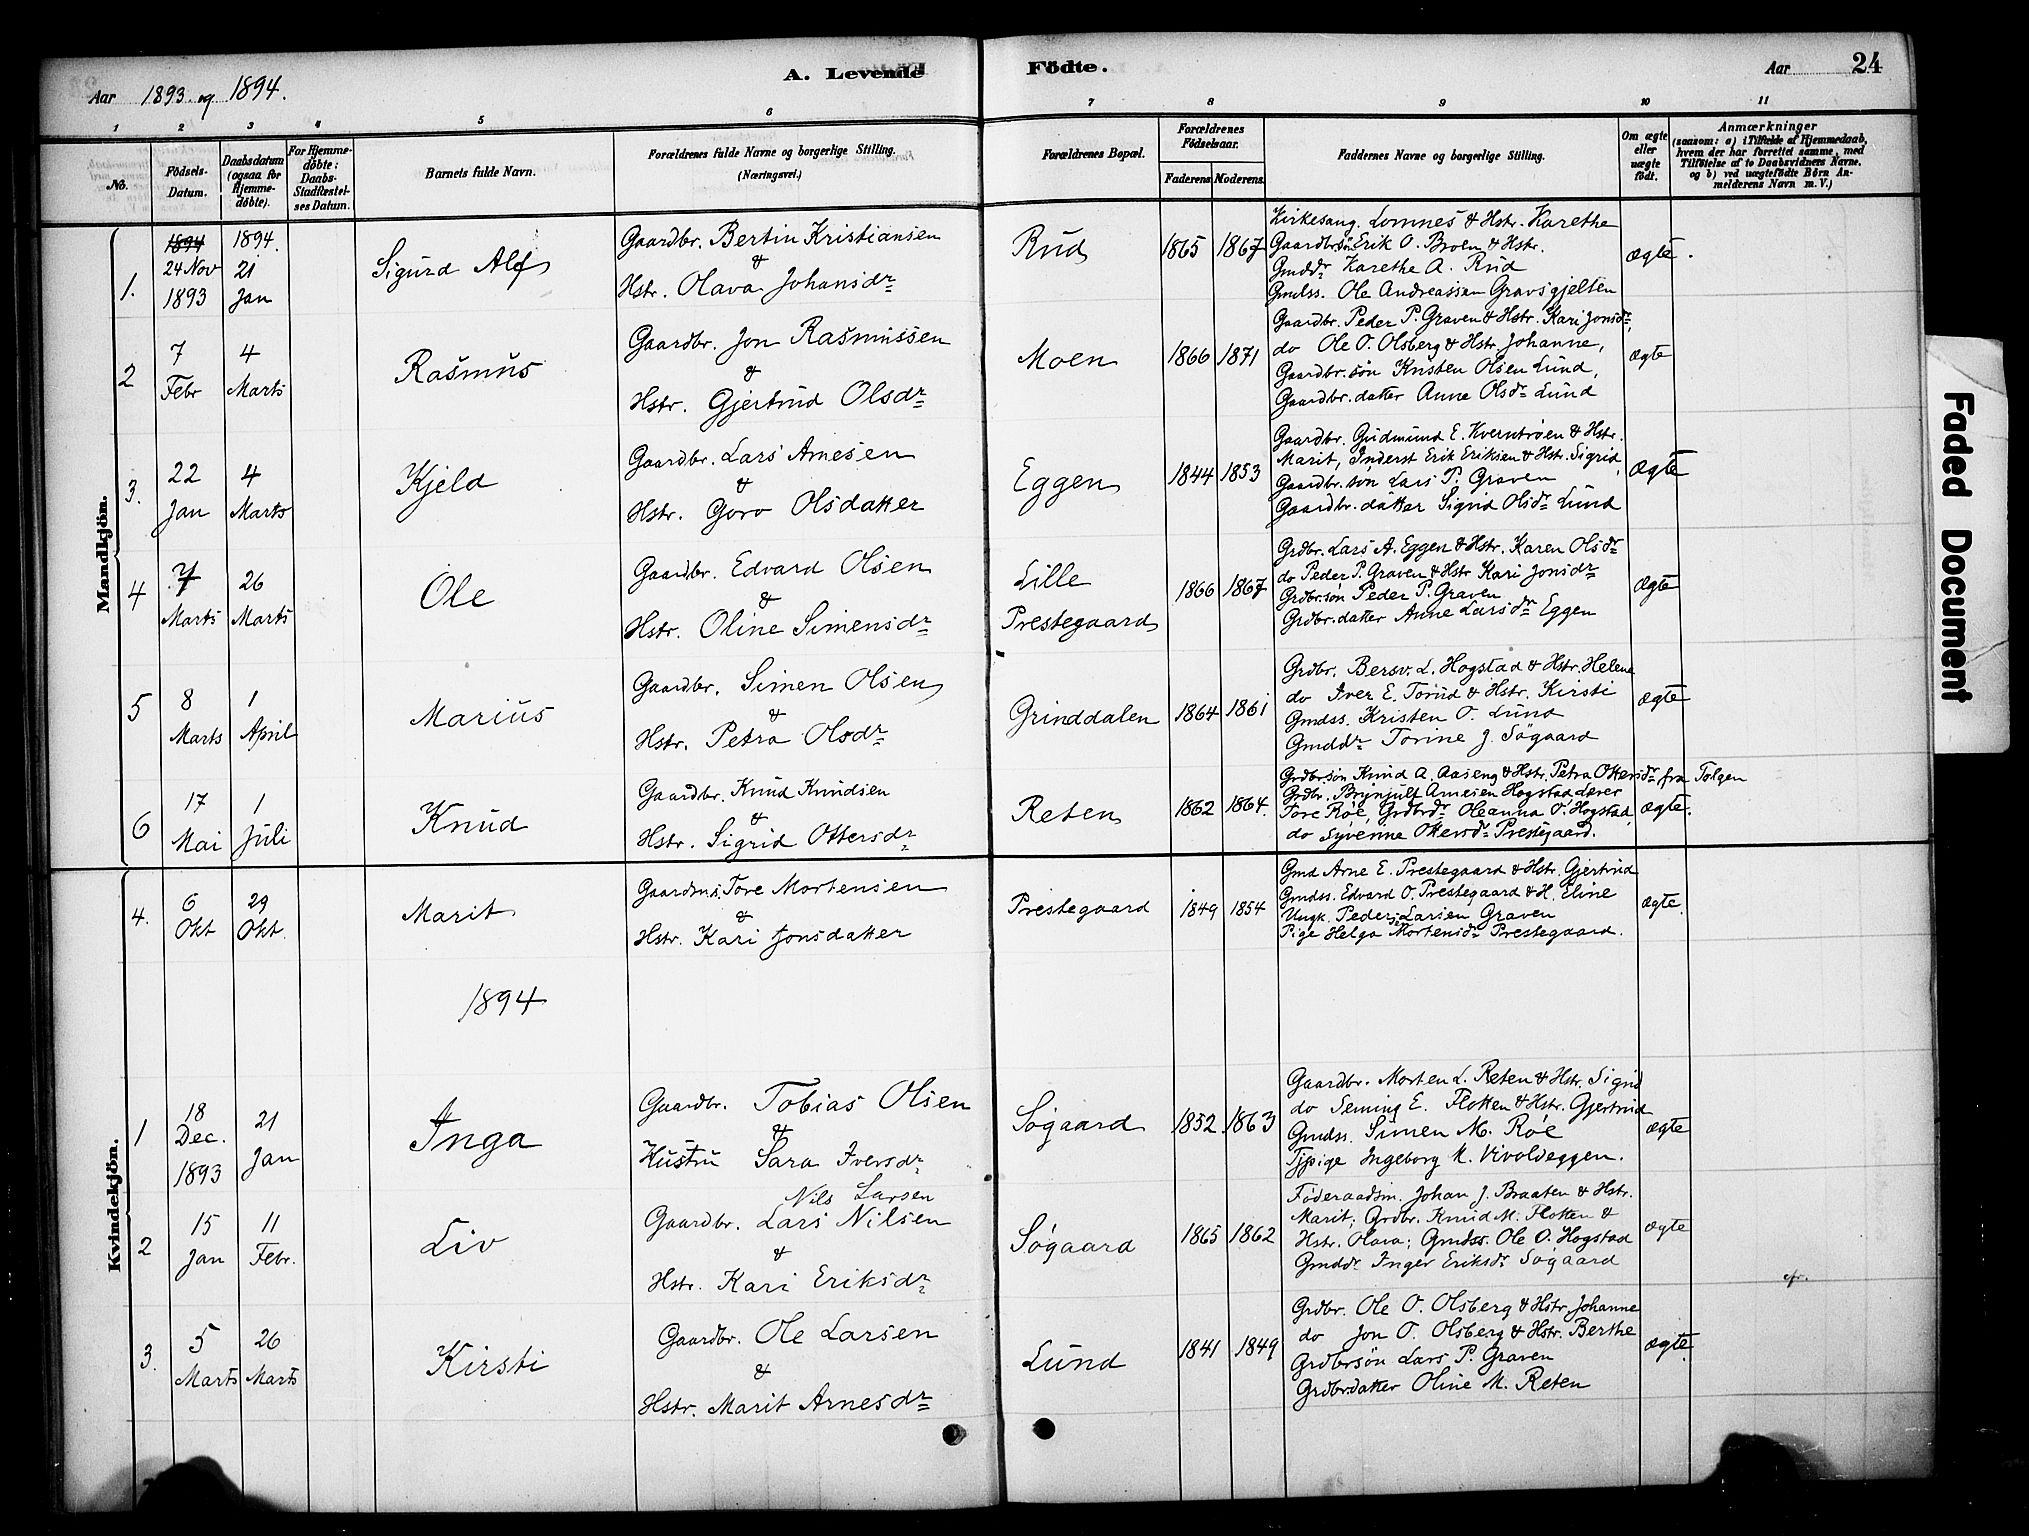 Aar 1893 og 1894.
A. Levende
Födte.
Aar
24
1
2
3
4
5
6
7
8
9
10
11
No.
Födsels-
Datum.
Daabsdatum
(ogsaa for
Hjemme-
döbte).
For Hjemme-
döbte:
Daabs-
Stadfæstel-
ses Datum.
Barnets fulde Navn.
Forældrenes fulde Navne og borgerlige Stilling.
(Næringsvei.)
Forældrenes Bopæl.
Forældrenes
Födselsaar.
Faderens. Moderens.
Faddernes Navne og borgerlige Stilling.
Om ægte
eller
uægte
födt.
Anmærkninger
(saasom: a) i Tilfælde af Hjemmedaab,
hvem der har forrettet samme, med
Tilföielse af to Daabsvidners Navne.
og b) ved uægtefödte Börn An-
melderens Navn m. V.)
Mandkjön.
1.
1894
24 Nov
1893
1894.
21
Jan
Sigurd Alf
Gaardbr. Bertin Kristiansen
&
Hstr. Olava Johansdr
Rud
1865 1867
Kirkesang. Lomnes & Hstr. Karethe
Gaardbrsön Erik O. Broen & Hstr.
Gmddr Karethe A. Rud
Gmdss. Ole Andreassen Gravsgjelten
ægte.
2
7
Febr
4
Marts
Rasmus
Gaardbr. Jon Rasmussen
&
Hstr. Gjertrud Olsdr
Moen
1866 1871
Gaardbr. Peder P. Graven & Hstr. Kari Jonsdr,
do Ole O. Olsberg & Hstr Johanne,
Gaardbr. sön Kristen Olsen Lund,
Gaardbr. datter Anne Olsdr Lund
ægte
3.
22
Jan
4
Marts
Kjeld
Gaardbr. Lars Arnesen
&
Hstr. Goro Olsdatter
Eggen
1844 1853
Gaardbr. Gudmund E. Kverntrøen & Hstr.
Marit, Inderst Erik Eriksen & Hstr. Sigrid,
Gaardbr. sön Lars P. Graven
Gaardbr. datter Sigrid Olsdr Lund
Ægte
4
7
Marts
26
Marts
Ole
Gaardbr. Edvard Olsen
&
Hstr. Oline Simensdr
Lille
Prestegaard
1866 1867
Grdbr. Lars A. Eggen & Hstr. Karen Olsdr
do Peder P. Graven & Hstr Kari Jonsdr
Grdbr. sön Peder P. Graven
Grdbr. datter Anne Larsdr Eggen
Ægte
5
8
Marts
1
April
Marius
Gaardbr. Simen Olsen
&
Hstr. Petra Olsdr
Grinddalen
1864 1861
Grdbr. Bersv. L. Hogstad & Hstr. Helena
do Iver E. Torud & Hstr. Kirsti
Gmdss. Kristen O. Lund
Gmddr Torine J. Søgaard
ægte
6
17
Mai
1
Juli
Knud
Gaardbr. Knud Knudsen
&
Hstr. Sigrid Ottersdr
Reten
1862 1864.
Grdbrsön Knud A. Aaseng & Hstr. Petra Ottersdr fra Tolgen
Grdbr. Brynjulf Arnesen Hogstad Lærer
Tore Røe, Grdbrdr Oleanna O. Hogstad
do Syvenne Ottersdr Prestegaard.
ægte.
Kvindekjön.
4.
6
Okt
29
Okt.
Marit
Gaardms. Tore Mortensen
&
Hstr. Kari Jonsdatter
Prestegaard
1849 1854
Gmd Arne E. Prestegaard & Hstr. Gjertrud
Gmdss. Edvard O. Prestegaard & H. Eline
Ungk. Peder Larsen Graven
Pige Helga Mortensdr Prestegaard.
ægte.
1894
1
18
Dec.
1893
21
Jan
Inga
Gaardbr. Tobias Olsen
&
Hustru Sara Iversdr
Søgaard
1852 1863
Gaardbr. Morten L. Reten & Hstr. Sigrid
do Seming E. Flotten & Hstr. Gjertrud
Gmdss. Simen M. Røe
Tjpige Ingeborg K. Vivoldeggen.
ægte
2
15
Jan
11
Febr.
Liv
Nils Larsen
Gaardbr. Lars Nilsen
&
Hstr. Kari Eriksdr
Søgaard
1865 1862
Föderaadsm. Johan J. Braaten & Hstr.
Marit; Grdbr. Knud M. Flotten &
Hstr. Olava; Gmdss. Ole O. Hogstad
Gmddr Inger Eriksdr Søgaard
ægte
cfr.
3.
5
Marts
26
Marts
Kirsti
Gaardbr. Ole Larsen
&
Hstr. Marit Arnesdr
Lund
1841 1849
Grdbr. Ole O. Olsberg & Hstr. Johanne
do Jon O. Olsberg & Hstr. Berthe
Grdbrsön Lars P. Graven
Grdbrdatter Oline M. Reten
ægte.
Faded Document